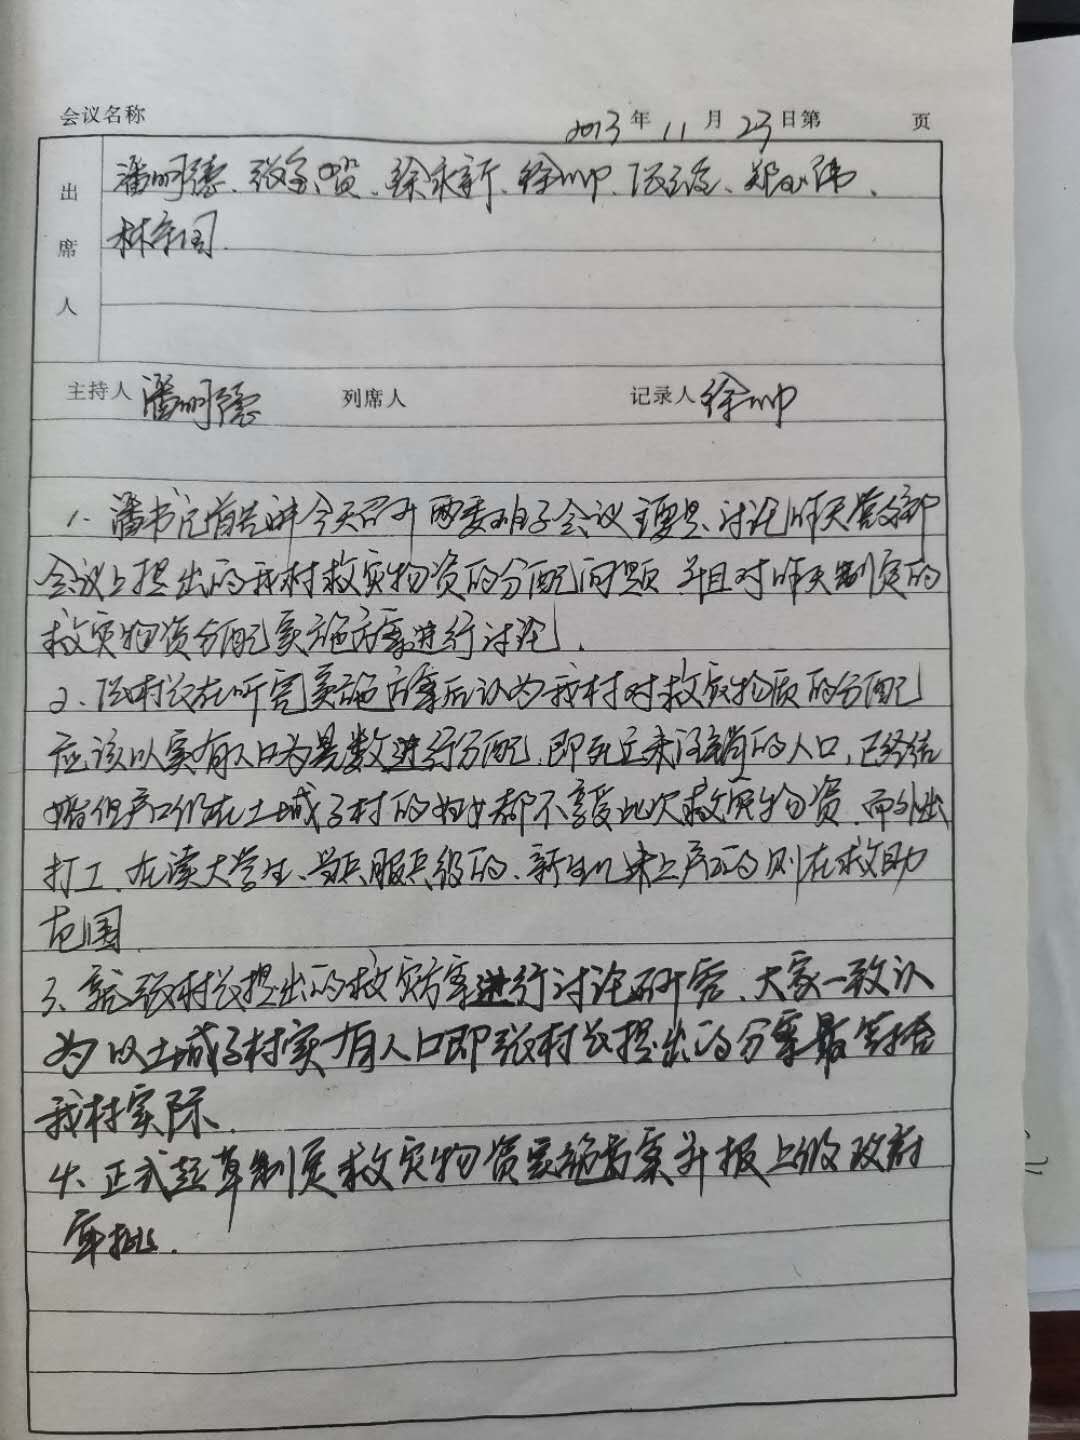 会议名称 2013年11月23日第 页
出席人 潘明德、徐永新、徐帅、
主持人 潘明德 列席人 记录人 徐帅
1、潘书记首先讲今天召开两委班子会议主要是讨论昨天党支部
会议上提出的我村救灾物资的分配问题并且对昨天制定的
救灾物资分配实施方案进行讨论.
2、张村长在听完实施方案后认为我村对救灾物质的分配
应该以实有人口为基数进行分配,即死亡未注销的人口,已经结
婚但户口仍在土城子村的妇女都不享受此次救灾物资.而外出
打工、在读大学生、当兵服兵役的、新生儿未上户口的则在救助
范围.
3、就张村长提出的救灾方案进行讨论研究、大家一致认
为以土城子村实有人口即张村长提出的方案最符合
我村实际.
4、正式起草制定救灾物资实施方案并报上级政府
审批.